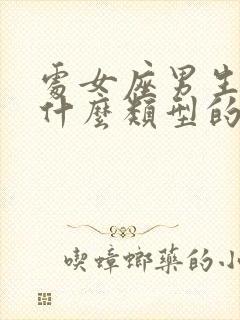 處女座男生
什麼類型的
喫蟑螂藥的小